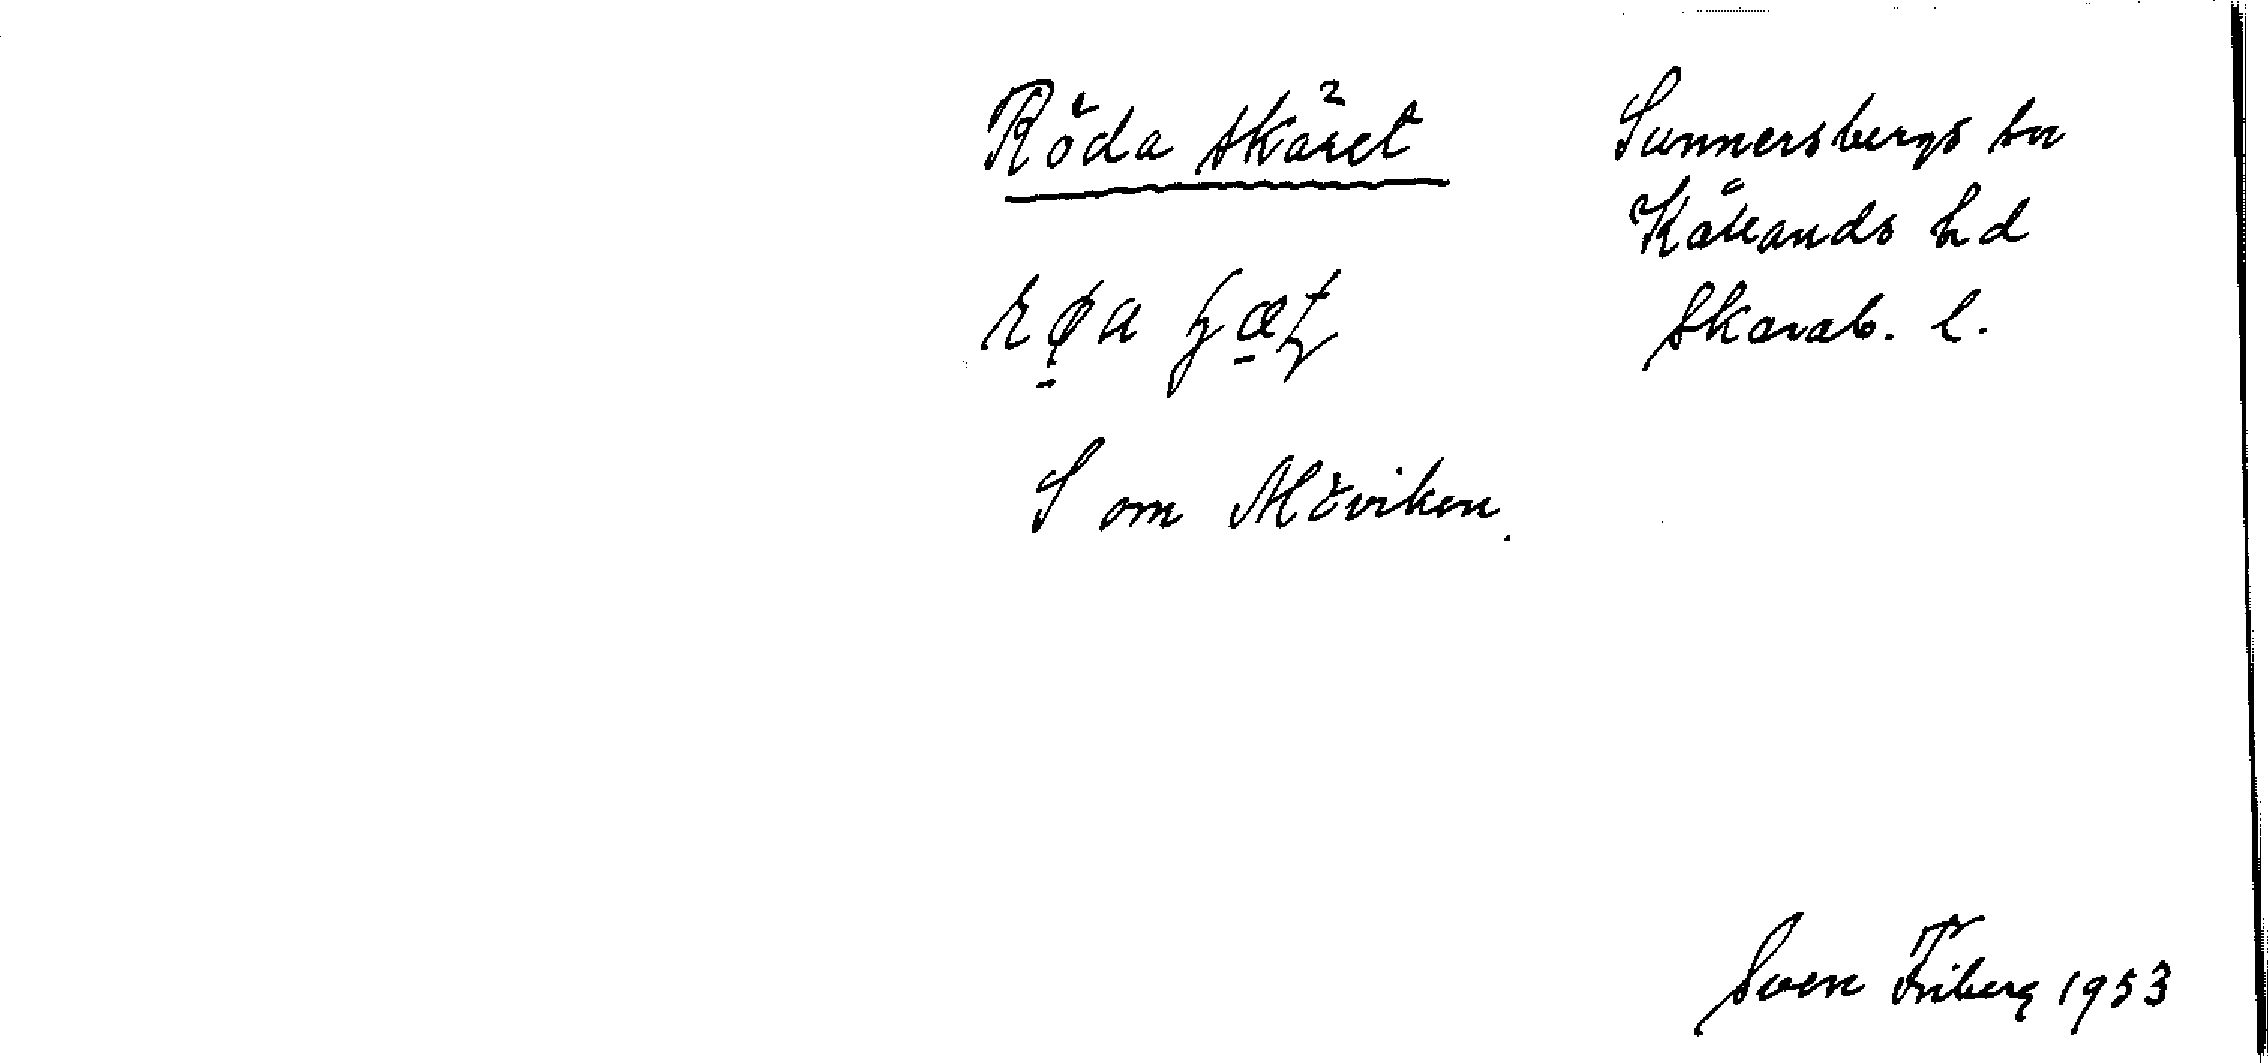 Röda skäret
Sunnersbergs sn
Kållands hd
Skarab. l.
S om Möviken.
Sven Friberg 1953